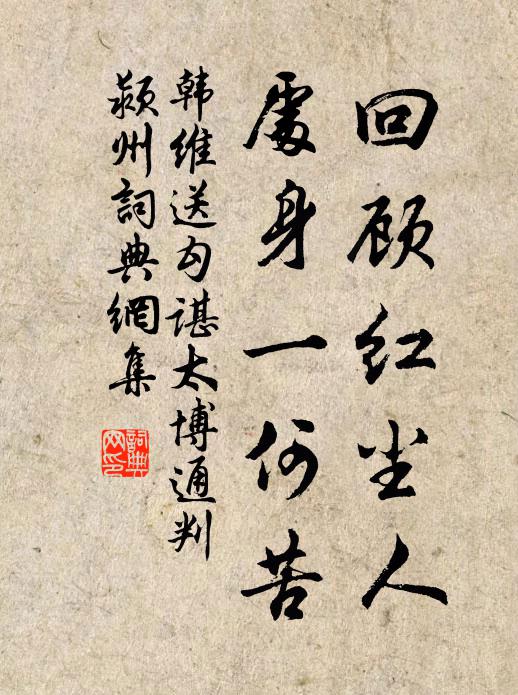 回顾红尘人
處身一何苦
韩维送勾谌太博通判
颍州詞典網集
詞典網印